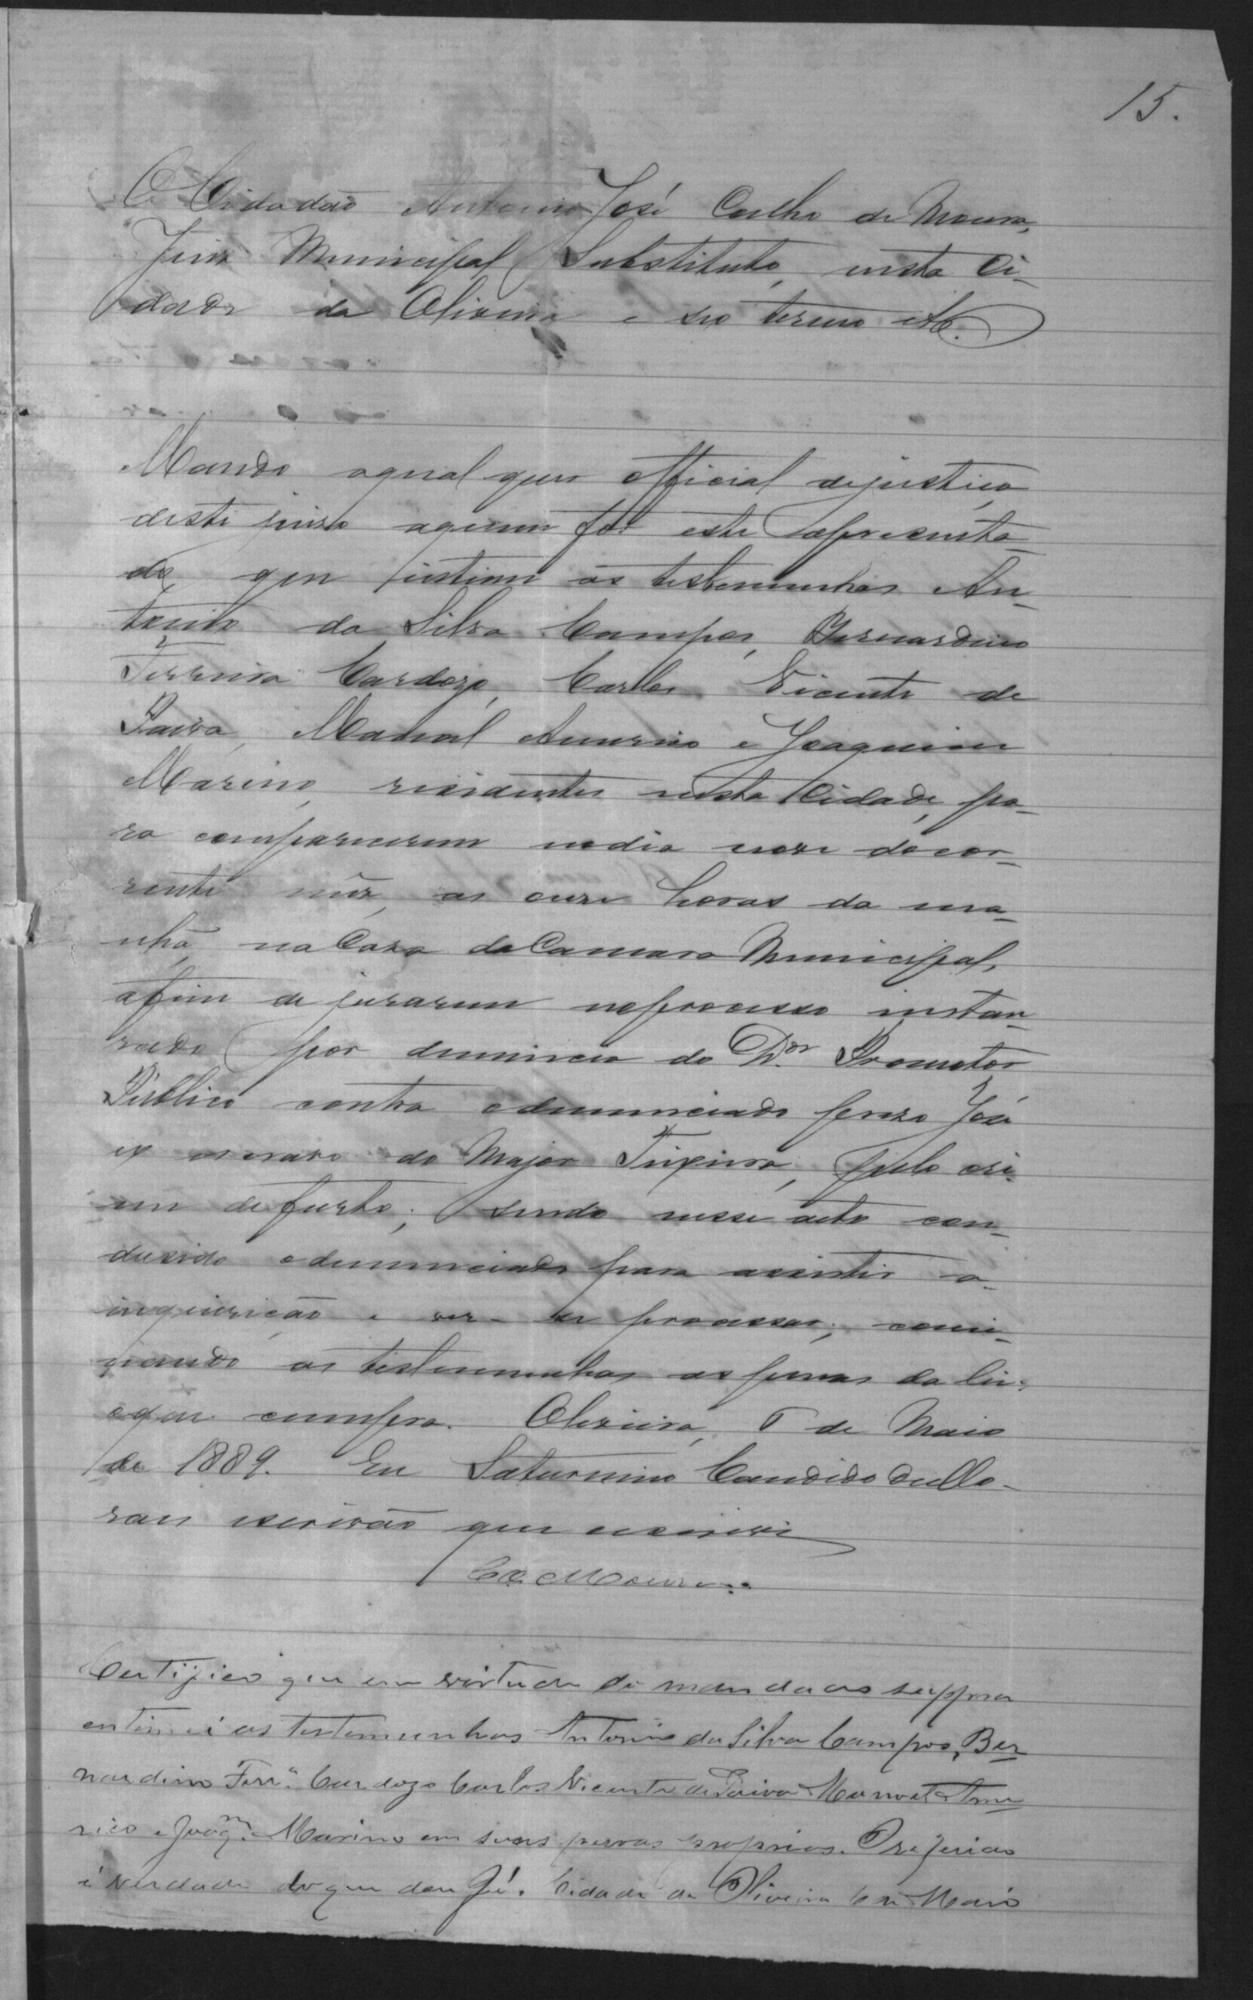 15.
O Cidadão Antonio José Coelho de Moura,
Juiz Municipal Substituto, nesta Ci-
dade de Oliveira e seo termo etc.
Mando aqual quer official dejustiça
deste juizo aquem for este apresenta-
do, que intime as testemunhas An-
tonio da Silva Campos, Bernardino
Ferreira Cardozo, Carlos Vicente de
Paiva, Manoel Americo e Joaquim
Marino, residentes nesta Cidade, pa-
ra comparecerem nodia nove docor-
rente mez, as onze horas da ma-
nhã, na Caza da Camara Municipal,
afim de jurarem noprocesso instau-
rado por denuncia do Dor Promotor
Publico contra odenunciado prezo José
ex escravo do Major Teixeira, pelo cri-
me de furto; sendo nesse acto con-
dusido odenunciado para assistir a
inquirição e ver-se processar; comi-
nando as testemunhas as penas da lei;
oque cumpra. Oliveira, 6 de Maio
de 1889. Eu Saturnino Candido
escrivão que escrevi
Moura
Certifico que em virtude do mandado suppra
entimei as testemunhas Antonio da Silva Campos, Ber
nardino Ferra Cardozo Carlos Vicente de Paiva Manoel Ame
rico e Joaqm Marino em suas pessoas proprias. O referido
é verdade do que dou fé. Cidade de Oliveira 6 de Maio